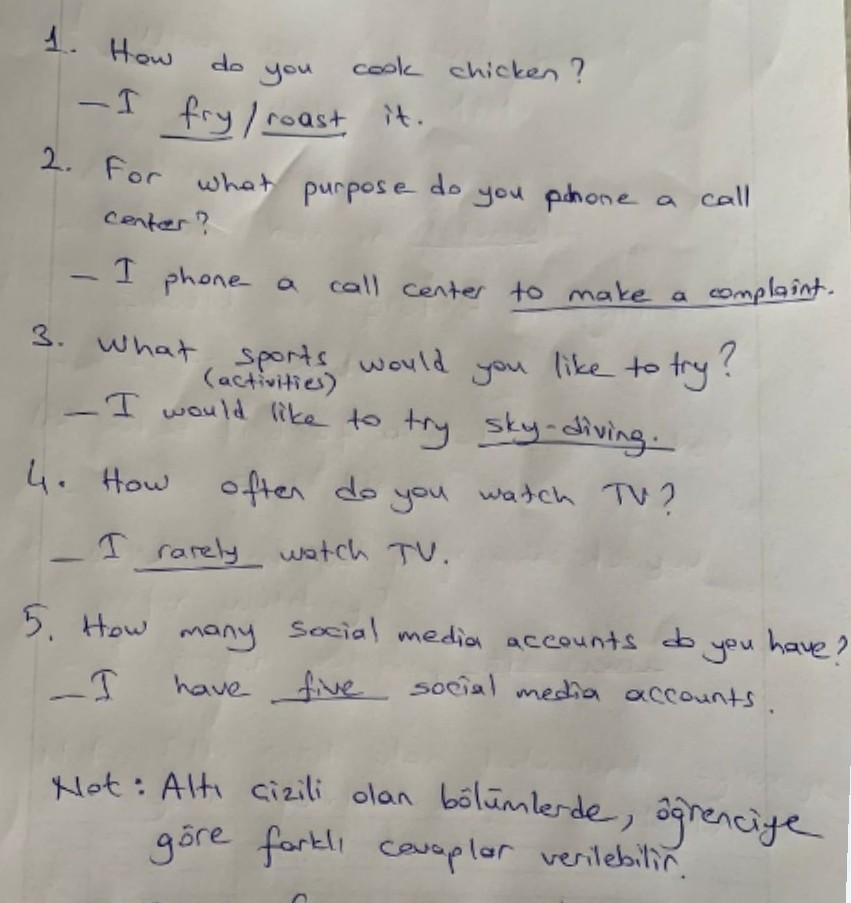 1. How do you cook chicken?
- I fry / roast it.
2. For what purpose do you phone a call
center?
- I phone a call center to make a complaint.
3. What sports would you like to try?
(activities)
- I would like to try sky-diving.
4. How often do you watch TV?
- I rarely watch TV.
5. How many social media accounts do you have?
- I have five social media accounts.
Not: Altı çizili olan bölümlerde, öğrenciye
göre farklı cevaplar verilebilir.